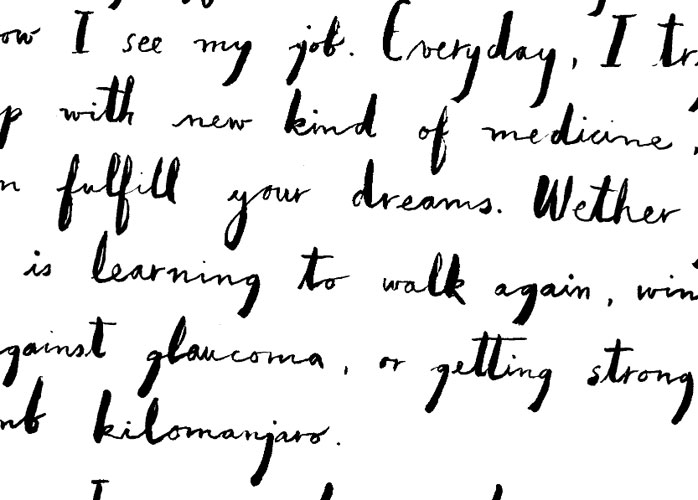 ow I see my job. Everyday, I tr
p with new kind of medicine,
n fulfill your dreams. Wether
is learning to walk again, win
gainst glaucoma, or getting strong
mb kilomanjaro.
I